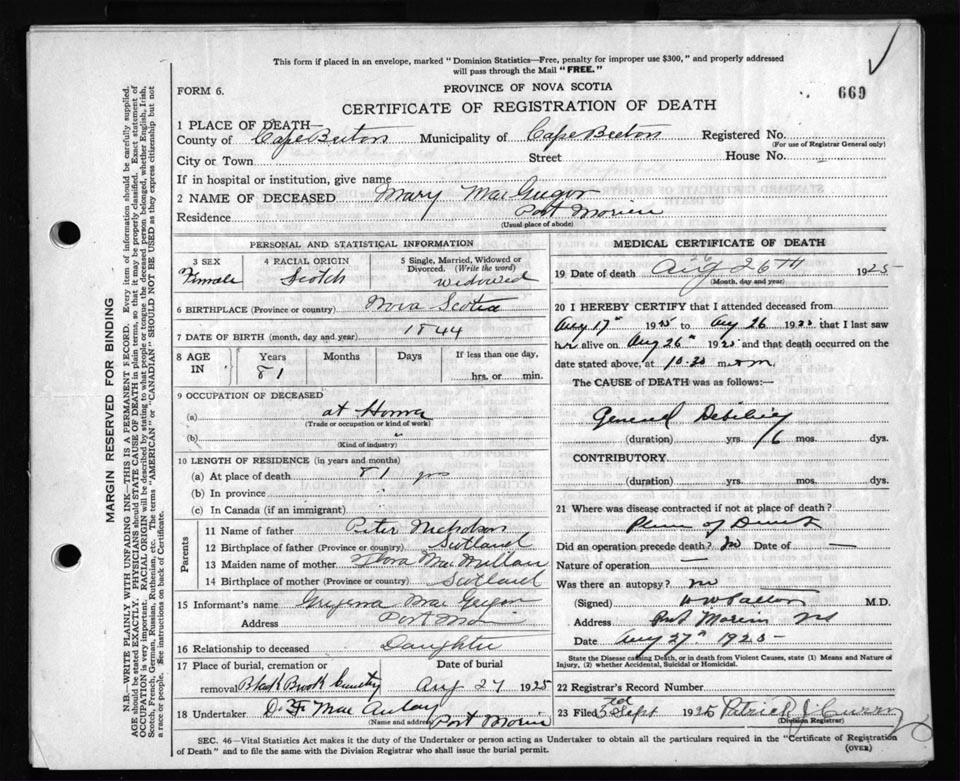 This form if placed in an envelope, marked "Dominion Statistics—Free, penalty for improper use $300," and properly addressed
will pass through the Mail "FREE."
FORM 6.
PROVINCE OF NOVA SCOTIA
669
CERTIFICATE OF REGISTRATION OF DEATH
1 PLACE OF DEATH
County of Cape Breton Municipality of Cape Breton Registered No.
(For use of Registrar General only)
City or Town Street House No.
If in hospital or institution, give name
2 NAME OF DECEASED Mary MacGregor
Residence Port Morien
(Usual place of abode)
PERSONAL AND STATISTICAL INFORMATION
3 SEX
Female
4 RACIAL ORIGIN
Scotch
5 Single, Married, Widowed or
Divorced. (Write the word)
widowed
6 BIRTHPLACE (Province or country) Nova Scotia
7 DATE OF BIRTH (month, day and year) 1844
8 AGE
IN
Years
81
Months
Days
If less than one day,
hrs. or min.
9 OCCUPATION OF DECEASED
(a) at Home
(Trade or occupation or kind of work)
(b) "
(Kind of industry)
10 LENGTH OF RESIDENCE (in years and months)
(a) At place of death 81 yrs
(b) In province
(c) In Canada (if an immigrant)
Parents
11 Name of father Peter Nicholson
12 Birthplace of father (Province or country) Scotland
13 Maiden name of mother Flora MacMillan
14 Birthplace of mother (Province or country) Scotland
15 Informant's name Mac Gregor
Address Port Morien
16 Relationship to deceased Daughter
17 Place of burial, cremation or
removal Black Brook Cemetry
Date of burial
Aug 27 1925
18 Undertaker D. F. MacAulay
(Name and address) Port Morien
MEDICAL CERTIFICATE OF DEATH
19 Date of death Aug 26TH 1925
(Month, day and year)
20 I HEREBY CERTIFY that I attended deceased from
Aug 17th 1925 to Aug 26 1925 that I last saw
her alive on Aug 26th 1925 and that death occurred on the
date stated above, at 10.20 m
The CAUSE of DEATH was as follows:
General Debility
(duration) yrs. 6 mos. dys.
CONTRIBUTORY
(duration) yrs. mos. dys.
21 Where was disease contracted if not at place of death?
Place of Death
Did an operation precede death? No Date of —
Nature of operation —
Was there an autopsy? no
(Signed) M.D.
Address Port Morien NS
Date Aug 27th 1925
State the Disease causing Death, or in death from Violent Causes, state (1) Means and Nature of
Injury, (2) whether Accidental, Suicidal or Homicidal.
22 Registrar's Record Number
23 Filed 3rd Sept 1925 Patrick J Curry
(Division Registrar)
SEC. 46—Vital Statistics Act makes it the duty of the Undertaker or person acting as Undertaker to obtain all the particulars required in the "Certificate of Registration
of Death" and to file the same with the Division Registrar who shall issue the burial permit.
(OVER)
MARGIN RESERVED FOR BINDING
N.B.—WRITE PLAINLY WITH UNFADING INK—THIS IS A PERMANENT RECORD. Every item of information should be carefully supplied.
AGE should be stated EXACTLY. PHYSICIANS should STATE CAUSE OF DEATH in plain terms, so that it may be properly classified. Exact statement of
OCCUPATION is very important. RACIAL ORIGIN will be described by stating to what people or tongue the deceased person belonged, whether English, Irish,
Scotch, French, German, Russian, Ruthenian, etc. The terms "AMERICAN" or "CANADIAN" SHOULD NOT BE USED as they express citizenship but not
a race or people. See instructions on back of Certificate.